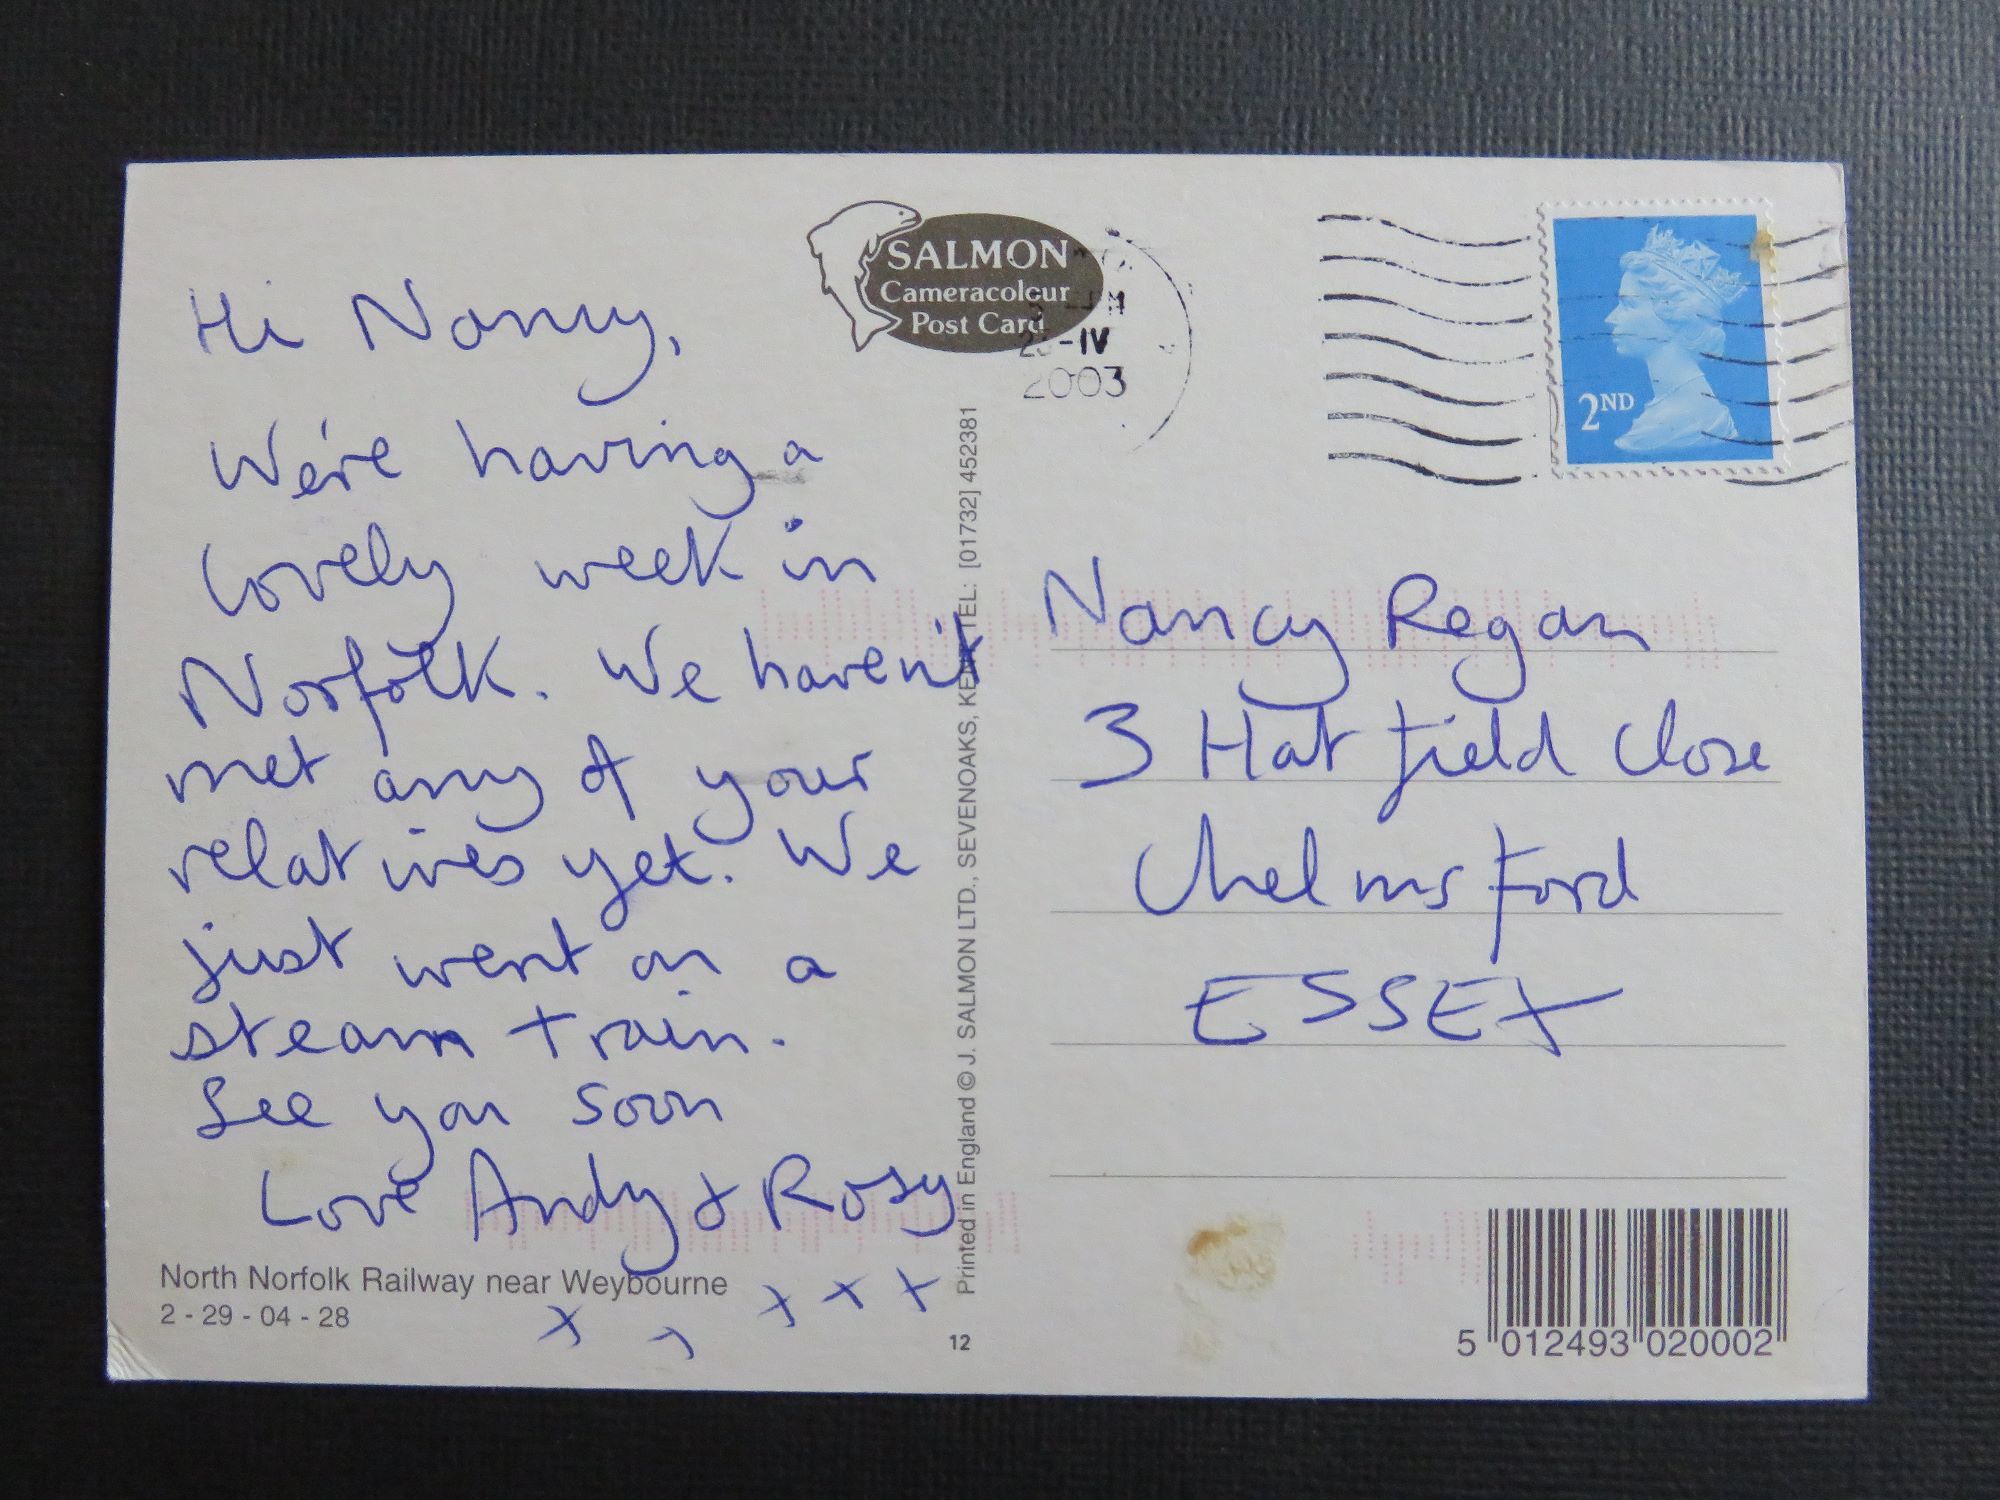 Hi Nancy,
We're having a
lovely week in
Norfolk. We haven't
met any of your
relatives yet. We
just went on a
steam train.
See you soon
Love Andy & Rosy
x x x x
North Norfolk Railway near Weybourne
2 - 29 - 04 - 28
SALMON
Cameracolour
Post Card
-IV
2003
2ND
Printed in England © J. SALMON LTD., SEVENOAKS, KENT TEL: [01732] 452381
12
Nancy Regan
3 Hatfield Close
Chelmsford
ESSEX
5 012493 020002